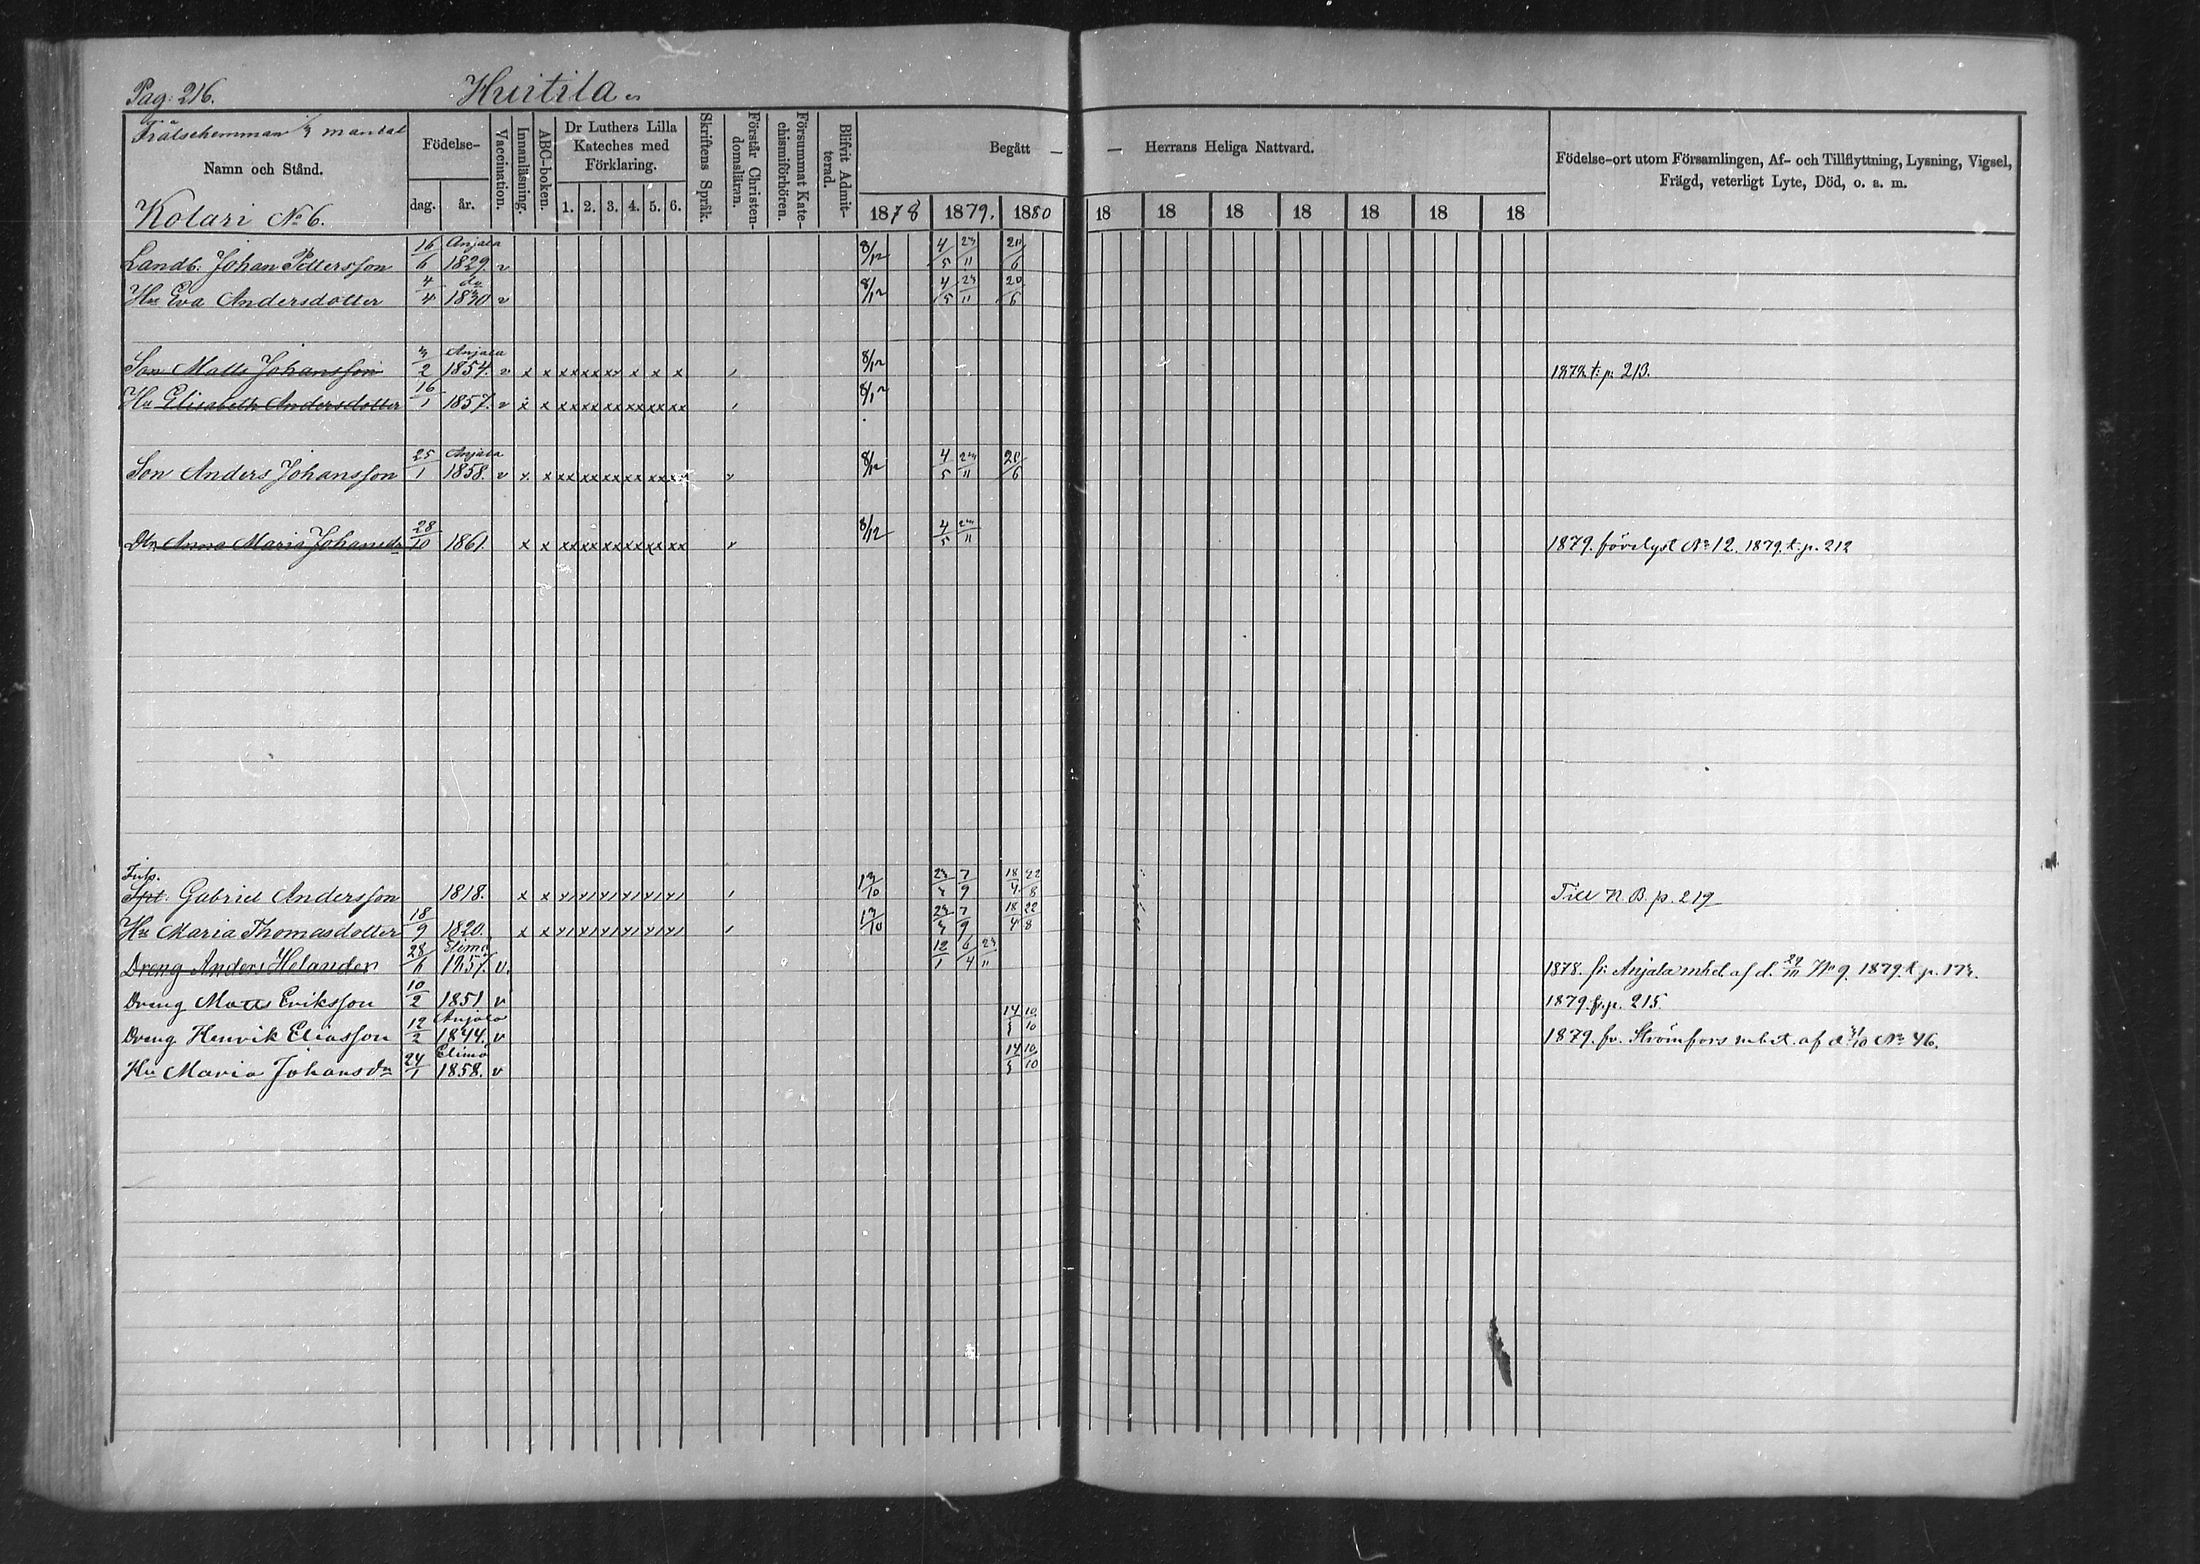 Pag: 216. Huitila
Frälsehemman 1/3 mantal
Namn och Stånd.
Kolari No 6.
Födelse-
dag. år.
Vaccination.
Innanläsning.
ABC-boken.
Dr Luthers Lilla
Kateches med
Förklaring.
1. 2. 3. 4. 5. 6.
Skriftens Språk.
Förstår Christen-
domsläran.
Försummat Kate-
chismiförhören.
Blifvit Admit-
terad.
Begått — — Herrans Heliga Nattvard.
1878 1879. 1880 18 18 18 18 18 18 18
Födelse-ort utom Församlingen, Af- och Tillflyttning, Lysning, Vigsel,
Frägd, veterligt Lyte, Död, o. a. m.
Landb: Johan Pettersson 16/6 Anjala 1829. v 8/12 4/5 23/11 20/6
Hu Eva Andersdotter 4/4 do 1830 v 8/12 4/5 23/11 20/6
Son Matts Johansson 3/2 Anjala 1854. v x x xx xx xx x x x 8/12 1878 t: p: 213.
Hu Elisabeth Andersdotter 16/1 1857. v x x xx xx xx xx xx xx 8/12
Son Anders Johansson 25/1 Anjala 1858. v x x xx xx xx xx xx xx 8/12 4/5 23/11 20/6
Dtr Anna Maria Johansdr 28/10 1861. x x xx xx xx xx xx xx 8/12 4/5 23/11 1879. förelyst No 12. 1879. t. p. 212
Inhs.
Gabriel Andersson 1818. x x 13/10 23/3 7/9 18/4 22/8 Till N B p. 219
Hu Maria Thomasdotter 18/9 1820. x x 13/10 23/3 7/9 18/4 22/8
Dreng Anders Helander 28/6 Elimä 1857. v. 12/1 6/4 23/11 1878. fr: Anjala mbet af d. No 9. 1879. t. p. 173.
Dreng Matts Eriksson 10/2 1851. v 1879. fr. p. 215.
Dreng Henrik Eliasson 12/2 Anjala 1844. v 14/3 10/10 1879. fr. Strömfors mbet. af d. No 46.
Hu Maria Johansdr 24/1 Elimä 1858. v 14/3 10/10